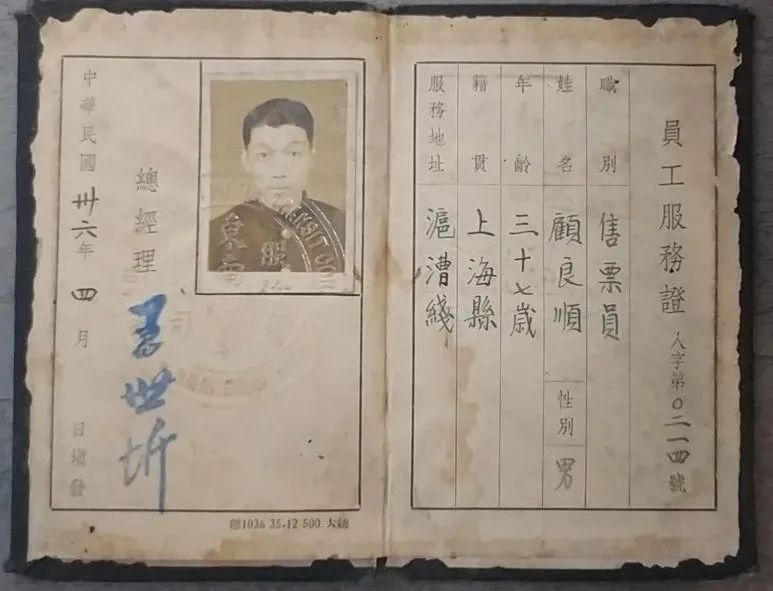 員工服務證 人字第0二一四號
職別 售票員
姓名 顧良順 性別 男
年齡 三十七歲
籍貫 上海縣
服務地址 滬漕綫
總經理
中華民國卅六年四月 日填發
1036 35.12 500